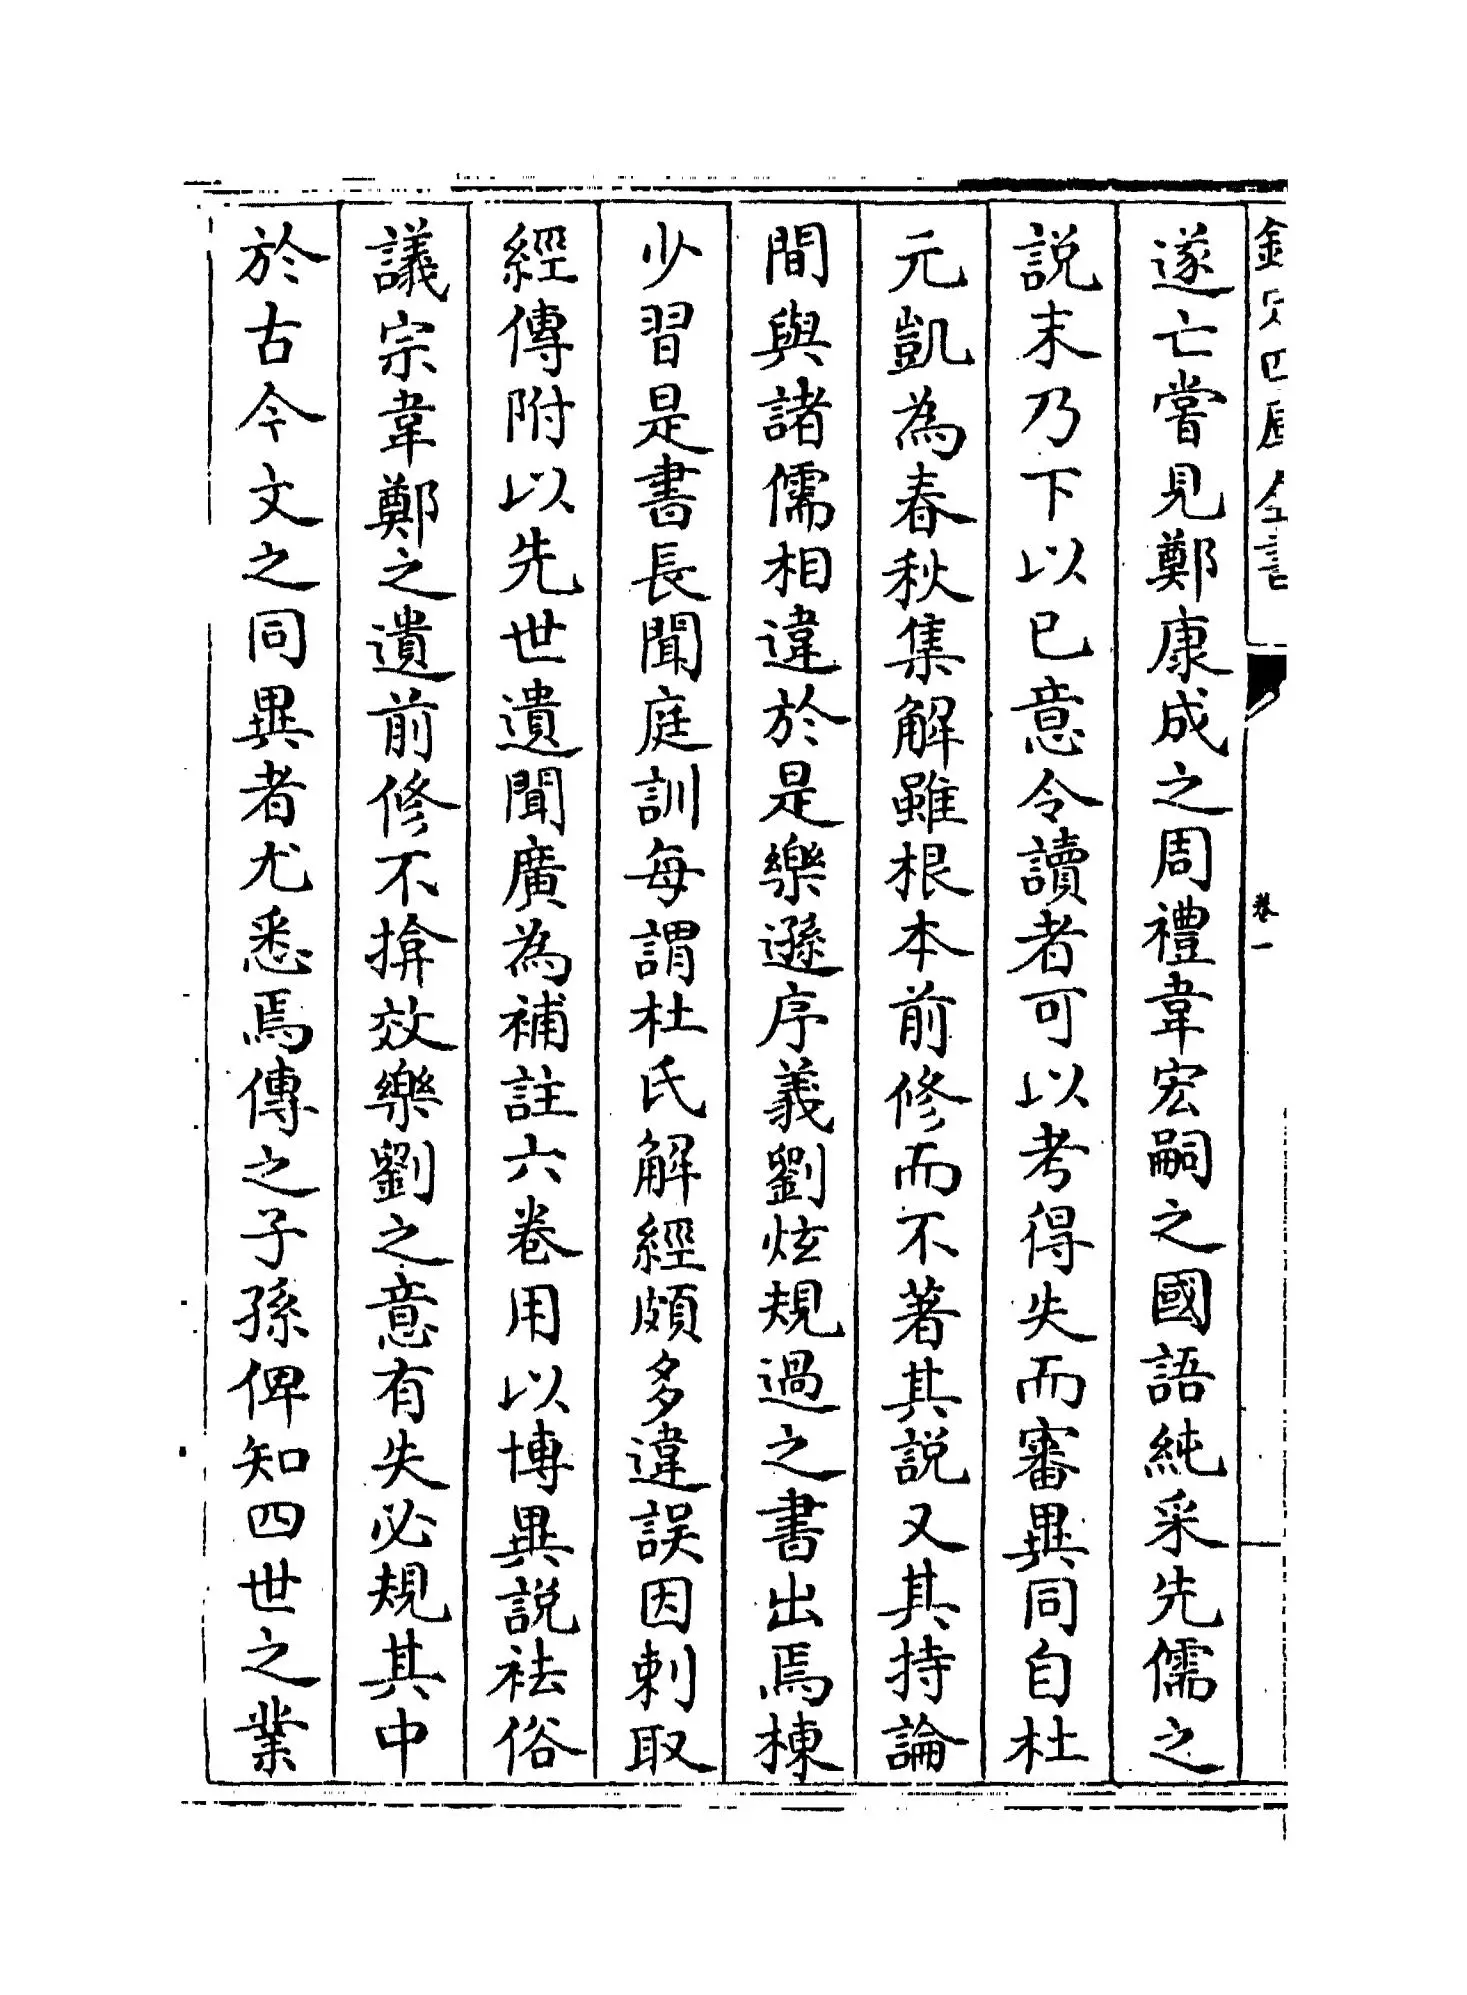 欽定四庫全書
卷一
遂亡嘗見鄭康成之周禮韋宏嗣之國語純采先儒之
説末乃下以已意令讀者可以考得失而審異同自杜
元凱為春秋集解雖根本前修而不著其説又其持論
間與諸儒相違於是樂遜序義劉炫規過之書出焉棟
少習是書長聞庭訓每謂杜氏解經頗多違誤因刺取
經傳附以先世遺聞廣為補註六卷用以博異説祛俗
議宗韋鄭之遺前修不揜效樂劉之意有失必規其中
於古今文之同異者尤悉焉傳之子孫俾知四世之業